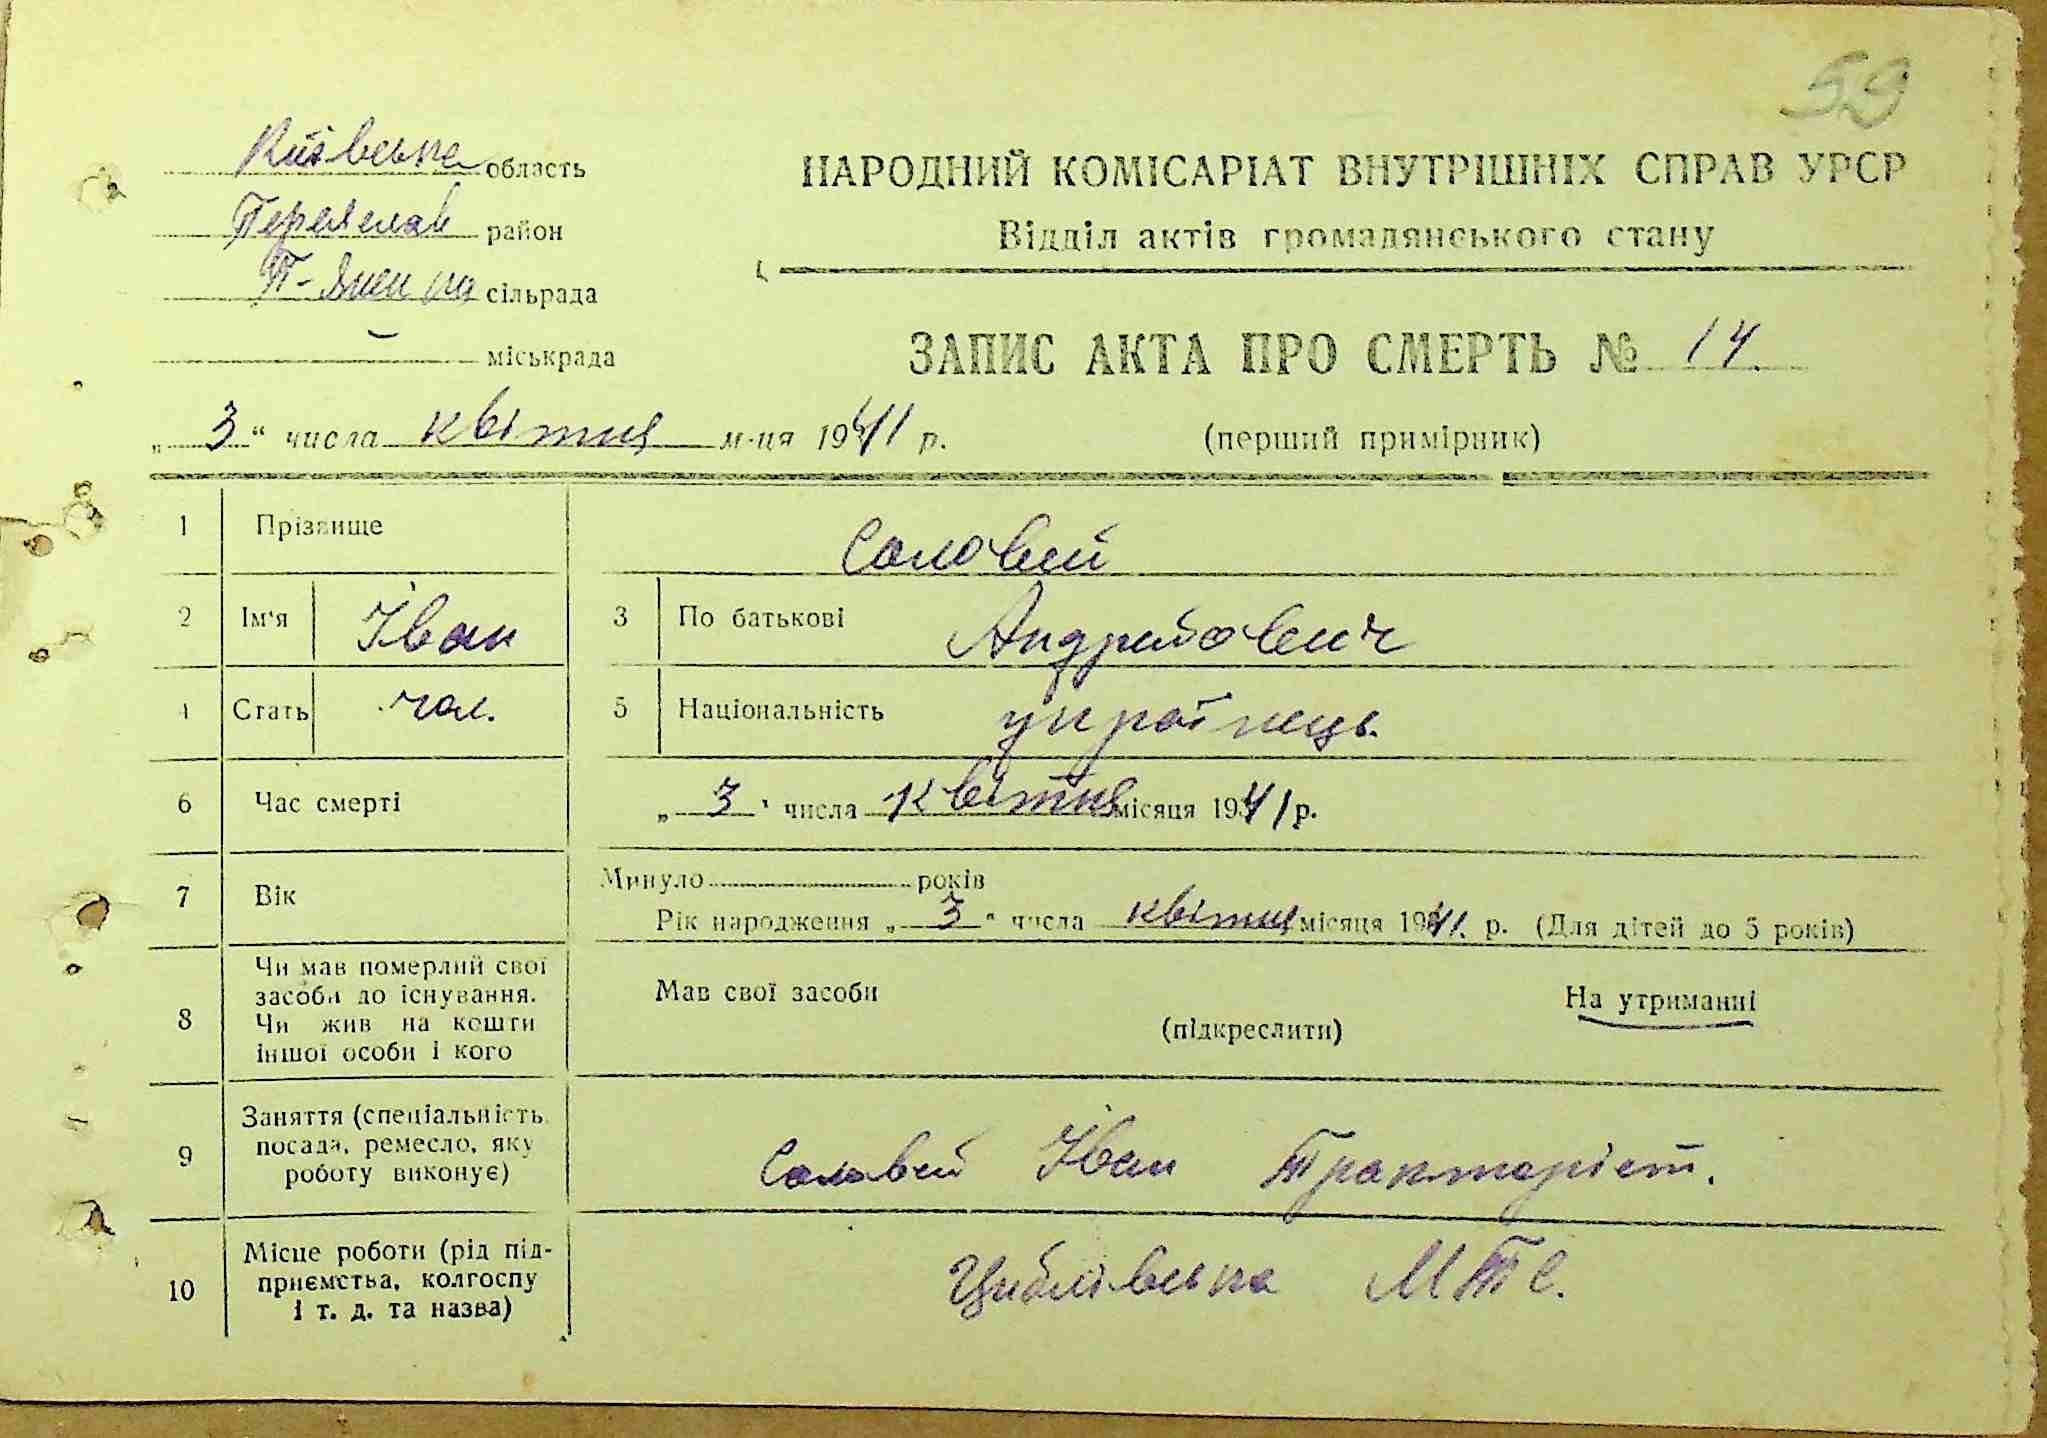 59
Київська область
Переяслав район
сільрада
міськрада
НАРОДНИЙ КОМІСАРІАТ ВНУТРІШНІХ СПРАВ УРСР
Відділ актів громадянського стану
ЗАПИС АКТА ПРО СМЕРТЬ № 14.
„ 3 “ числа квітня м-ця 1941 р.
(перший примірник)
1 Прізвище Соловей
2 Ім'я Іван 3 По батькові Андрійович
4 Стать чол. 5 Національність українець.
6 Час смерті „ 3 “ числа квітня місяця 1941 р.
7 Вік Минуло років
Рік народження „ 3 “ числа квітня місяця 1941. р. (Для дітей до 5 років)
8 Чи мав померлий свої
засоби до існування.
Чи жив на кошти
іншої особи і кого
Мав свої засоби На утриманні
(підкреслити)
9 Заняття (спеціальність,
посада, ремесло, яку
роботу виконує)
Соловей Іван Тракторіст.
10 Місце роботи (рід під-
приємства, колгоспу
і т. д. та назва)
Циблівська МТС.